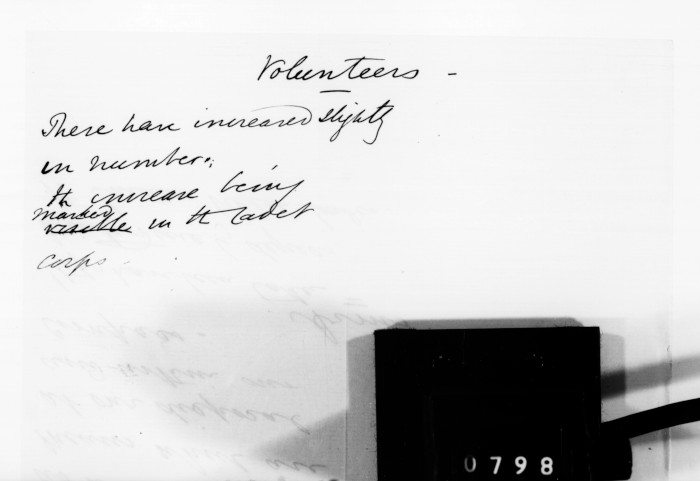 Volunteers -
There have increased slightly
in number;
th increase being
marked
visible in th Cadet
corps.
0798